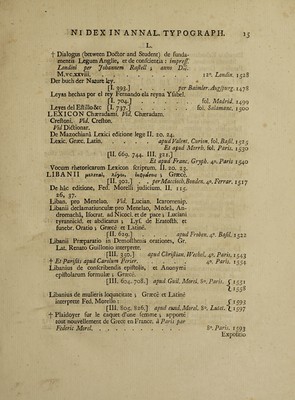 NIDEX IN ANNAL. TYPOGRAPH. 15
L.
† Dialogus (between Doctor and Student) de funda-
mentis Legum Angliæ, et de conscientia : impress.
Londini per Johannem Rastell ; anno Dñi.
M.vc.xxviii. . . . . . . . 12°. Londin. 1528
Der buch der Nature ley.
[I. 395.] . . . per Baimler. Augspurg. 1478
Leyas hechas por el rey Fernando ela reyna Ysabel.
[I. 704.] . . . . . fol. Madrid. 1499
Leyes del Estillo &c [I. 737.] . . fol. Salamanc. 1500
LEXICON Chæradami. Vid. Chæradam.
Crestoni. Vid. Creston.
Vid Dictionar.
De Mazochiana Lexici editione lege II. 20. 24.
Lexic. Græc. Latin. . . apud Valent. Curion. fol. Basil. 1525
Et apud Morrh. fol. Paris. 1530
[II. 669. 744. III. 521.]
Et apud Franc. Gryph. 4°. Paris 1540
Vocum rhetoricarum Lexicon scriptum. II. 20. 23.
LIBANII μελεται, λόγοι, ἐκφράσεις ; Græcè.
[II. 302.] . . per Macioch. Bonden. 4°. Ferrar. 1517
De hâc editione, Fed. Morelli judicium. II. 115.
26, 37.
Liban. pro Menelao. Vid. Lucian. Icaromenip.
Libanii declamatiunculæ pro Menelao, Medeâ, An-
dromachâ, Isocrat. ad Nicocl. et de pace ; Luciani
tyrannicid. et abdicatus ; Lys. de Eratosth. et
funebr. Oratio ; Græcè et Latinè.
[II. 629.] . . . apud Froben. 4°. Basil. 1522
Libanii Præparatio in Demosthenis orationes, Gr.
Lat. Renato Guillonio interprete.
[III. 350.] . apud Christian. Wechel. 4°. Paris. 1543
† Et Parisiis apud Carolum Perier. . . . 4°. Paris. 1554
Libanius de conscribendis epistolis, et Anonymi
epistolarum formulæ ; Græcè.
[III. 604. 708.] apud Guil. Morel. 8°. Paris. { 1551
{ 1558
Libanius de mulieris loquacitate ; Græcè et Latinè
interprete Fed. Morello : { 1595
[III. 805. 826.] apud eund. Morel. 8°. Lutet. { 1597
† Plaidoyer sur le caquet d'une femme ; apporté
tout nouvellement de Grece en France. à Paris par
Federic Morel. . . . . . . 8°. Paris. 1593
Expositio